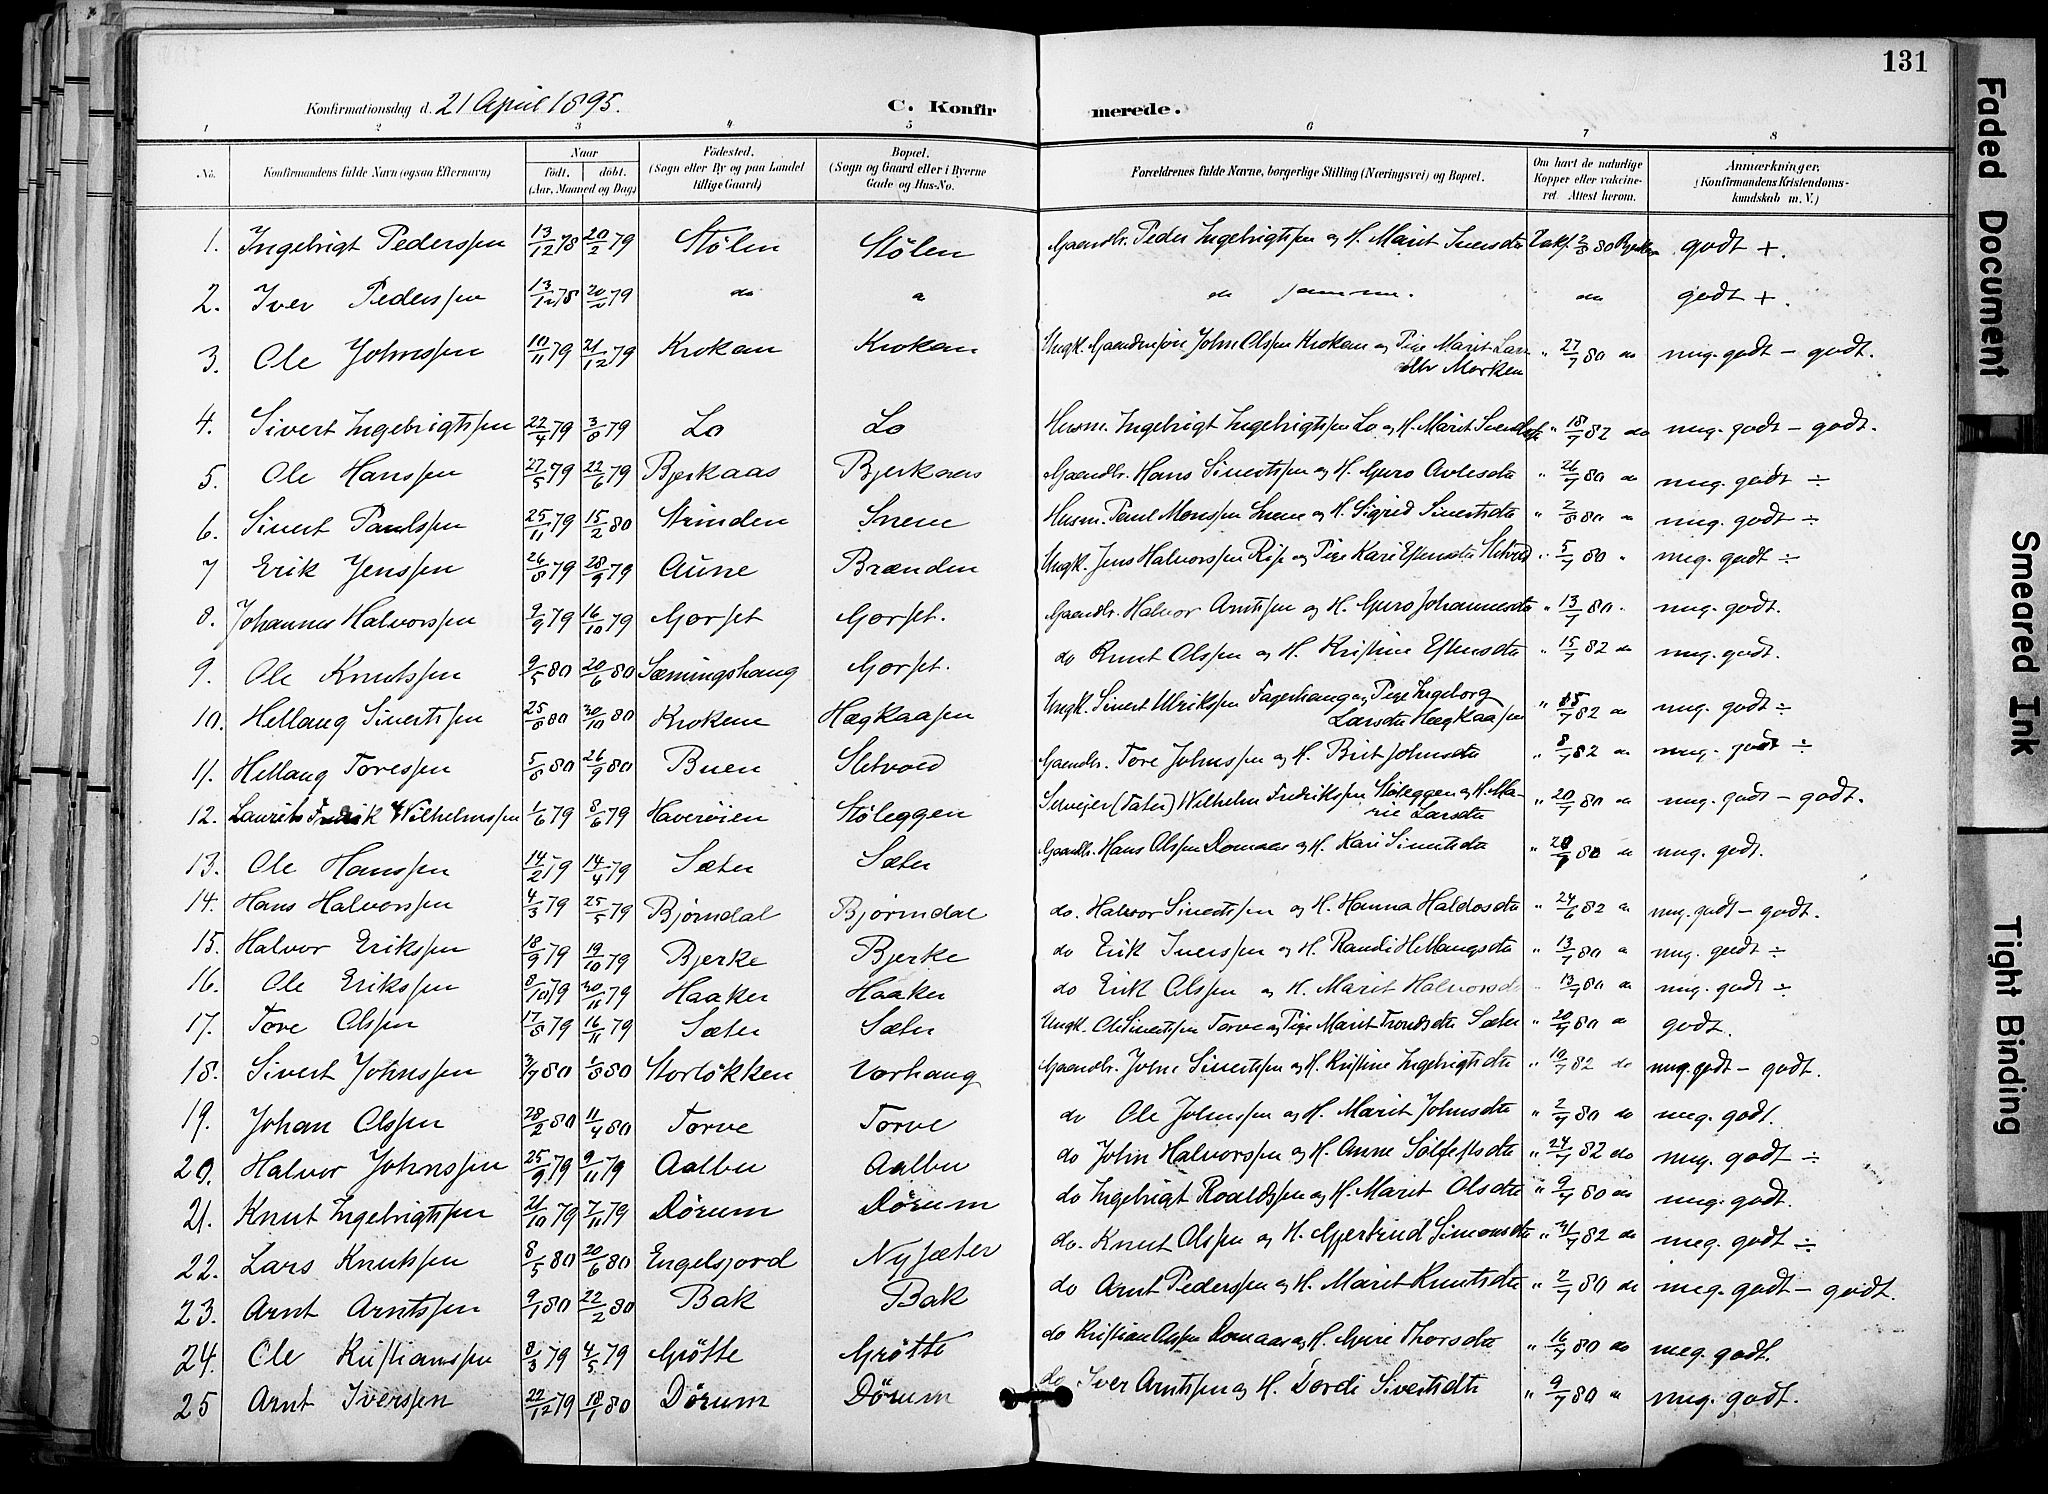 131
Konfirmationsdag d. 21 April 1895. C. Konfirmerede.
1 2 3 4 5 6 7 8
No. Konfirmandens fulde Navn (ogsaa Efternavn) Naar födt. döbt. (Aar, Maaned og Dag) Födested. (Sogn eller By og paa Landet tillige Gaard) Bopæl. (Sogn og Gaard eller i Byerne Gade og Hus-No. Forældrenes fulde Navne, borgerlige Stilling (Næringsvei) og Bopæl. Om havt de naturlige Kopper eller vakcineret Attest herom. Anmærkninger, (Konfirmandens Kristendomskundskab m. V.)
1. Ingebrigt Pederssen 13/12 78 20/2 79 Stölen Stölen Gaardbr. Peder Ingebrigtssen og H. Marit Iversdtr Vakc. 2/8 80 godt +.
2. Iver Pederssen 13/12 78 20/2 79 do do samme. do godt +.
3. Ole Johnssen 10/11 79 21/12 79 Krokan Krokan Ungk. Gaardmssön John Olssen Krokan og Pige Marit Larsdtr Morken " 27/7 80 do meg. godt - godt.
4. Sivert Ingebrigtssen 22/4 79 3/8 79 Lo Lo Husm. Ingebrigt Ingebrigtssen Lo og H. Marit Svendsdtr " 18/7 82 do meg. godt - godt.
5. Ole Hanssen 27/5 79 22/6 79 Bjerkaas Bjerkaas Gaardbr. Hans Sivertssen og H. Guro Avlesdtr " 26/7 80 do meg. godt ÷
6. Sivert Paulssen 25/11 79 15/2 80 Strinden Snene Husm. Paul Monssen Snene og H. Sigrid Sivertsdtr " 2/8 80 " meg. godt ÷
7 Erik Jenssen 26/8 79 28/9 79 Aune Brænden Ungk. Jens Halvorssen Rise og Pige Kari Estensdtr Sletvold " 5/7 80 " meg. godt ÷
8. Johannes Halvorssen 9/9 79 16/10 79 Gorset Gorset. Gaardbr. Halvor Arntssen og H. Guro Johannesdtr " 13/7 80 " meg. godt.
9. Ole Knutssen 9/5 80 20/6 80 Sæmingshaug Gorset. do Knut Olssen og H. Kristine Estensdtr " 15/7 82 do meg. godt.
10. Hellang Sivertssen 25/8 80 30/10 80 Kroken Hægkaasen Ungk. Sivert Ulrikssen Fagerhaug og Pige Ingeborg Larsdtr Hægkaasen " 15/7 82 do meg. godt ÷
11. Hellang Toressen 5/8 80 26/9 80 Buen Sletvold Gaardbr. Tore Johnssen og H. Brit Johnsdtr " 8/7 82 do meg. godt ÷
12. Laurits Fredrik Wilhelmssen 1/6 79 8/6 79 Haveröien Stöleggen Selveier (Tater) Wilhelm Fredrikssen Stöleggen og H. Marie Larsdtr " 20/7 80 do meg. godt - godt.
13. Ole Hanssen 14/2 79 14/4 79 Sæter Sæter Gaardbr. Hans Olssen Domaas og H. Kari Sivertsdtr " 20/7 80 do meg. godt.
14. Hans Halvorssen 4/3 79 25/5 79 Björndal Björndal do. Halvor Sivertssen og H. Hanna Haldosdtr " 24/6 82 do meg. godt - godt.
15. Halvor Erikssen 18/9 79 19/10 79 Bjerke Bjerke do Erik Iverssen og H. Randi Hellangsdtr " 13/7 80 do meg. godt ÷
16. Ole Erikssen 8/10 79 30/11 79 Haaker Haaker do Erik Olssen og H. Marit Halvorsdtr " 13/7 80 do meg. godt ÷
17. Tore Olssen 17/8 79 16/11 79 Sæter Sæter Ungk. Ole Sivertssen Torve og Pige Marit Trondsdtr Sæter " 20/7 80 do godt.
18. Sivert Johnssen 3/7 80 1/8 80 Storlökken Vorhaug Gaardbr. John Sivertssen og H. Kristine Ingebrigtsdtr " 10/7 82 do meg. godt - godt.
19. Johan Olssen 28/2 80 11/4 80 Torve Torve do Ole Johnssen og H. Marit Johnsdtr " 2/7 80 do meg. godt.
20. Halvor Johnssen 25/9 79 9/11 79 Aalbu Aalbu do John Halvorssen og H. Anne Sölfestsdtr " 24/7 82 do meg. godt ÷
21. Knut Ingebrigtssen 21/10 79 7/11 79 Dörum Dörum do Ingebrigt Roaldssen og H. Marit Olsdtr " 9/7 80 do meg. godt.
22. Lars Knutssen 8/5 80 20/6 80 Engelsjord Nysæter do. Knut Olssen og H. Gjertrud Simonsdtr " 31/7 82 do meg. godt ÷
23. Arnt Arntssen 9/1 80 22/2 80 Bak Bak do Arnt Pederssen og H. Marit Knutsdtr " 2/7 80 do meg. godt - godt.
24. Ole Kristianssen 8/3 79 4/5 79 Grötte Grötte do Kristian Olssen Domaas og H. Guri Thorsdtr " 16/7 80 do meg. godt.
25 Arnt Iverssen 22/12 79 18/1 80 Dörum Dörum do Iver Arntssen og H. Dordi Sivertsdtr " 9/7 80 " meg. godt.
Faded Document
Smeared Ink
Tight Binding